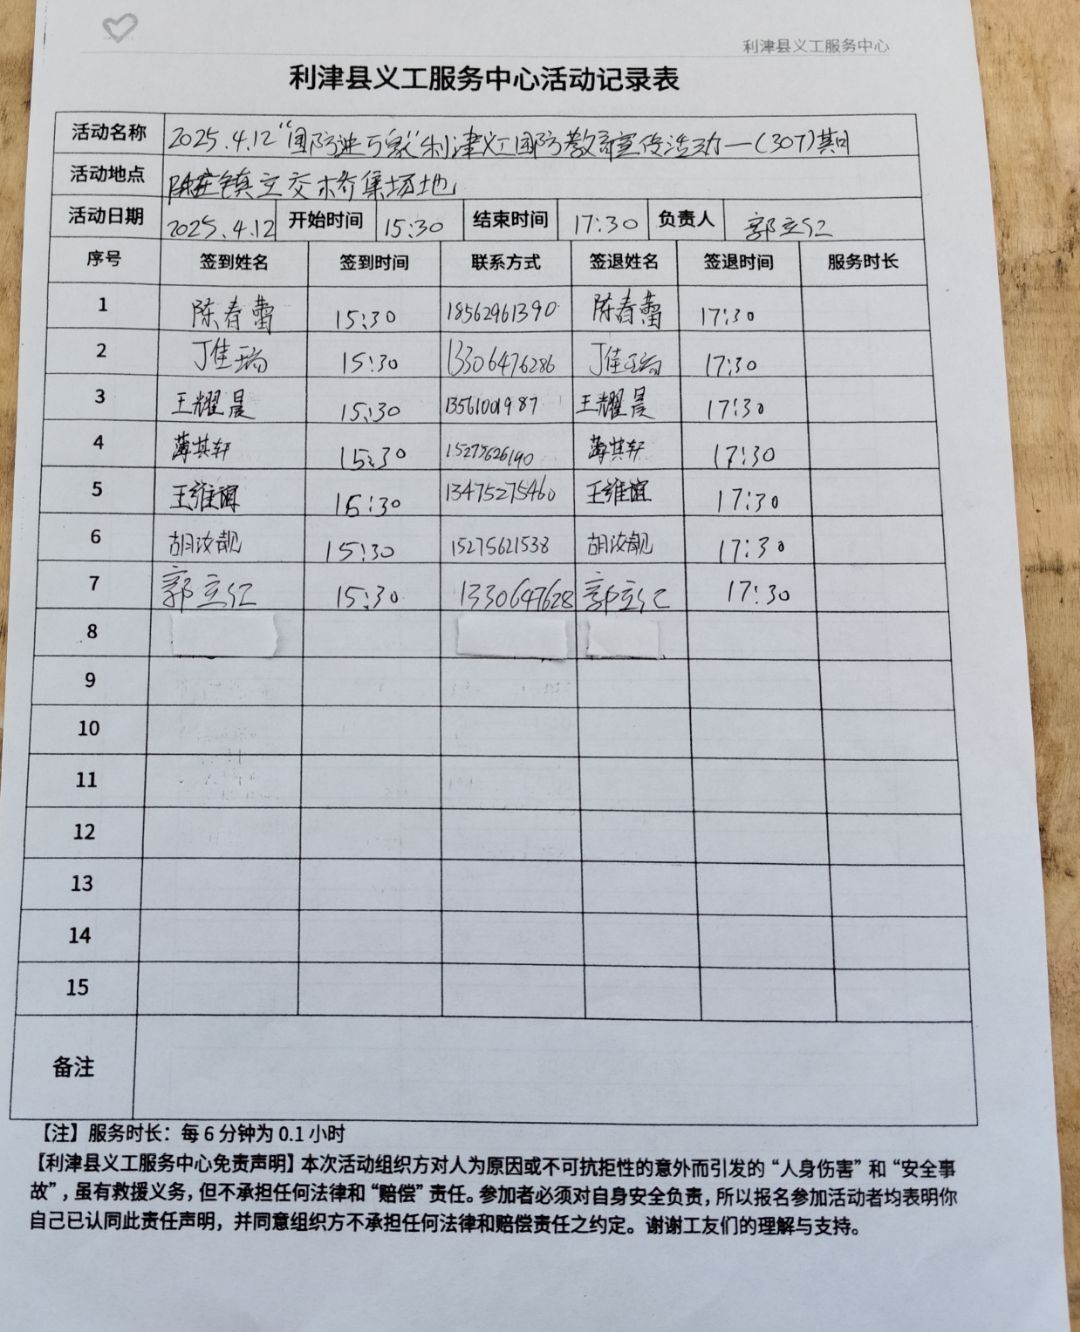 利津县义工服务中心
利津县义工服务中心活动记录表
活动名称 2025.4.12“国防进万家”利津义工国防教育宣传活动—(307)期
活动地点 陈庄镇立交桥集场地
活动日期 2025.4.12 开始时间 15:30 结束时间 17:30 负责人 郭立仁
序号 签到姓名 签到时间 联系方式 签退姓名 签退时间 服务时长
1 陈春蕾 15:30 18562961390 陈春蕾 17:30
2 丁佳瑞 15:30 13306476286 丁佳瑞 17:30
3 王耀晨 15:30 13561001987 王耀晨 17:30
4 薄其轩 15:30 15275626190 薄其轩 17:30
5 王维谊 15:30 13475275460 王维谊 17:30
6 胡汝靓 15:30 15275621538 胡汝靓 17:30
7 郭立仁 15:30 1330647628 郭立仁 17:30
8
9
10
11
12
13
14
15
备注
【注】服务时长：每 6 分钟为 0.1 小时
【利津县义工服务中心免责声明】本次活动组织方对人为原因或不可抗拒性的意外而引发的“人身伤害”和“安全事
故”，虽有救援义务，但不承担任何法律和“赔偿”责任。参加者必须对自身安全负责，所以报名参加活动者均表明你
自己已认同此责任声明，并同意组织方不承担任何法律和赔偿责任之约定。谢谢工友们的理解与支持。